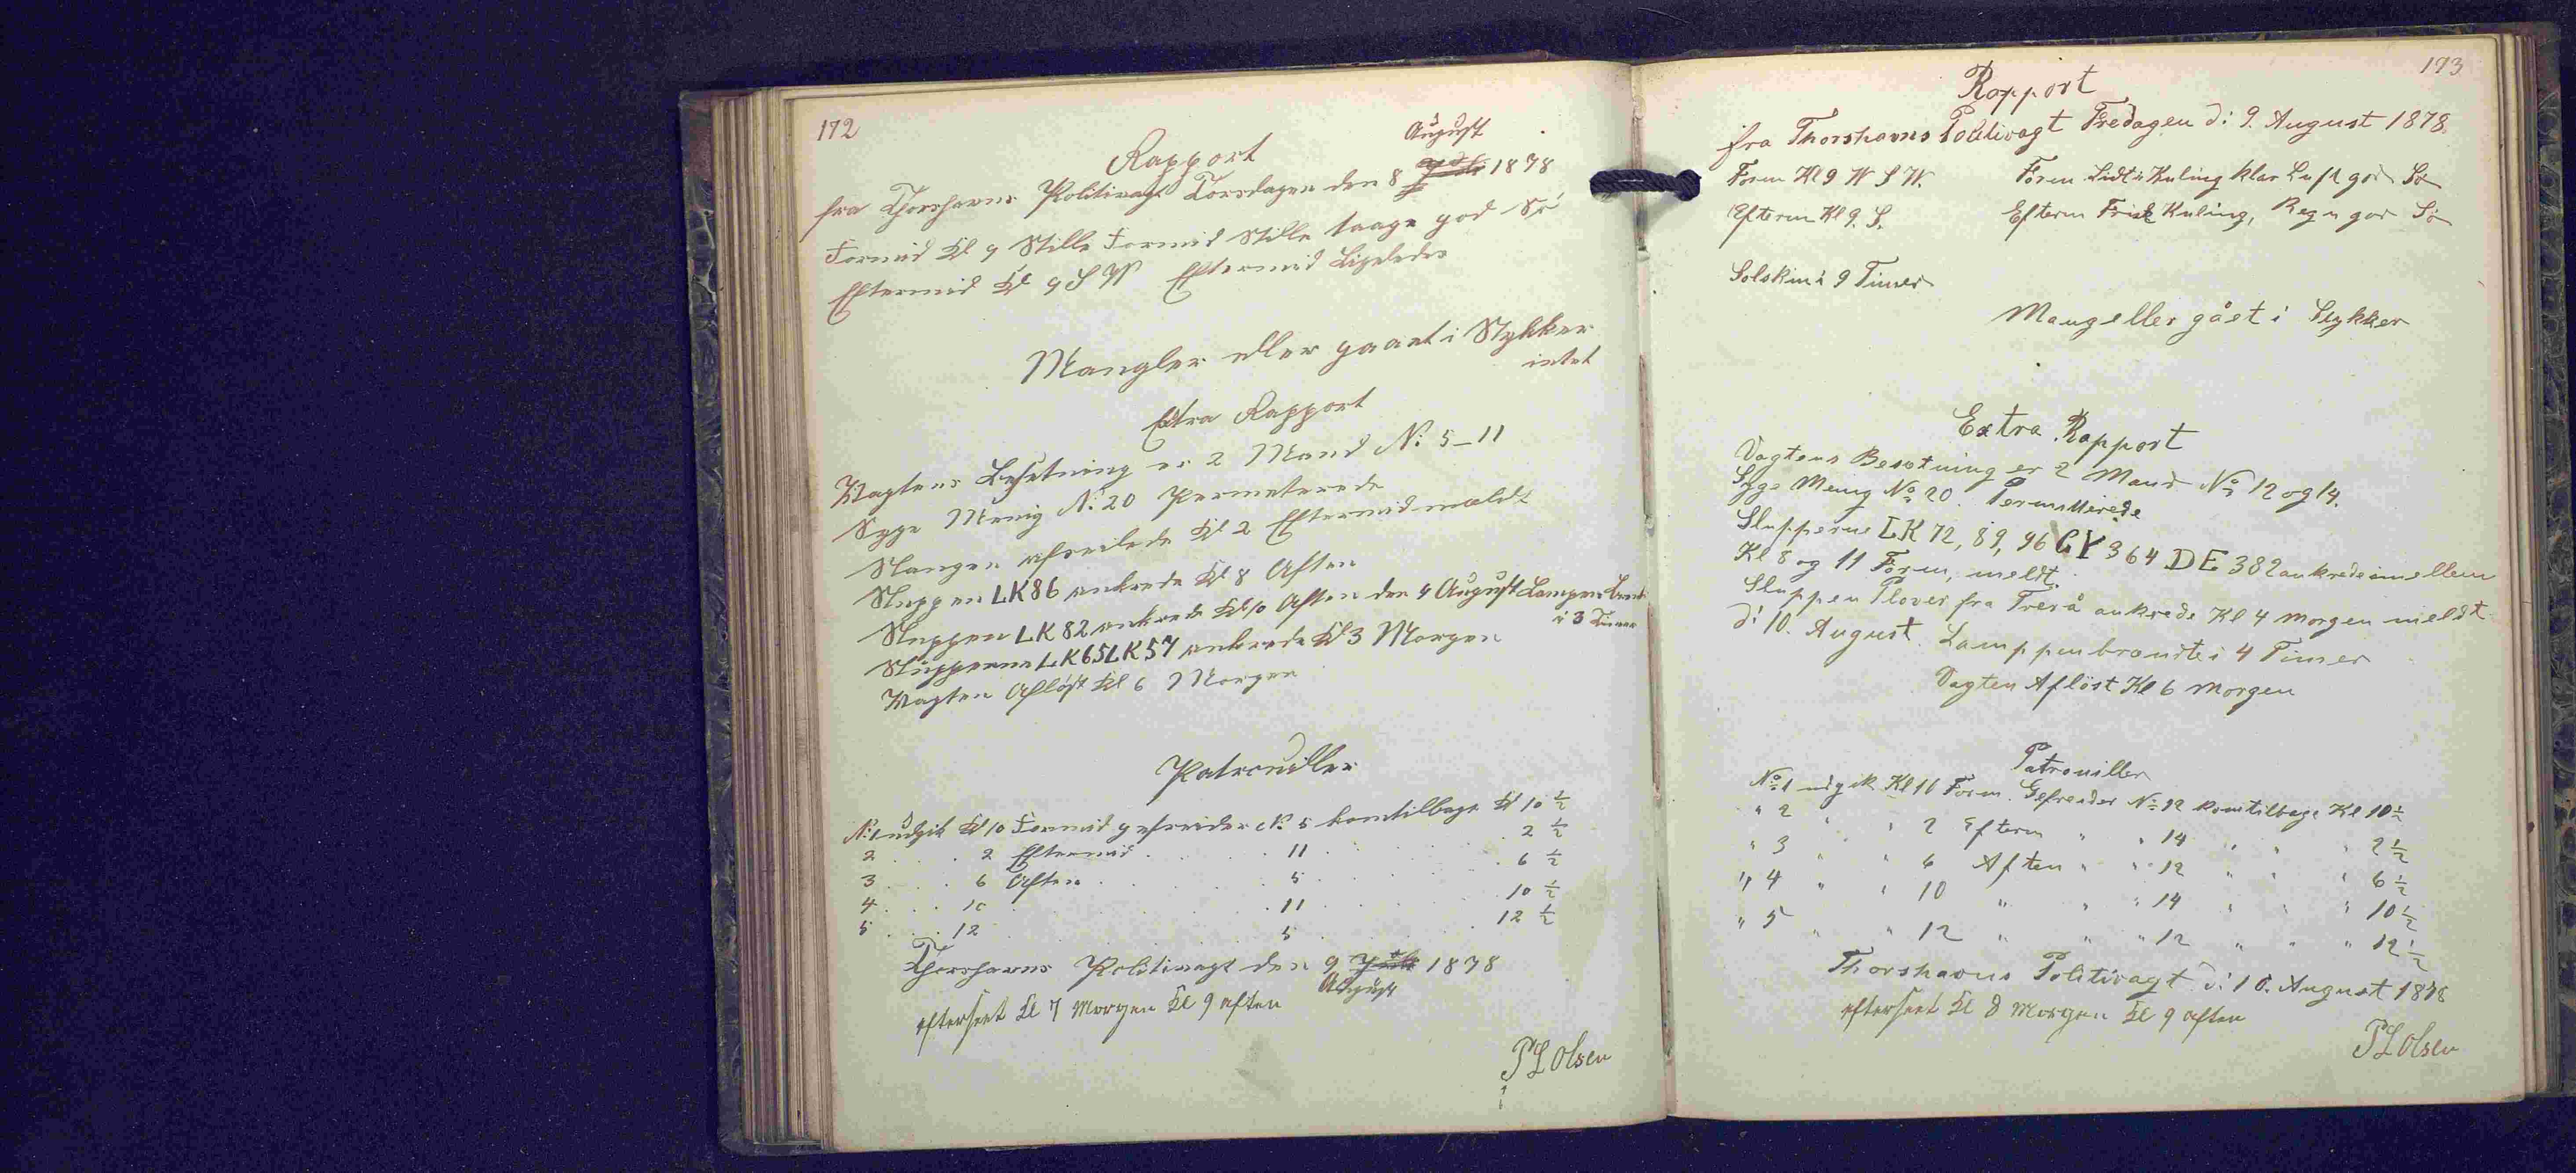 172
Rapport
August
fra Thorshavns Politivagt Torsdagen den 8 1878
Formid Kl 9 Stille Formid Stille taage god Sö
Eftermid Kl 9 S W Eftermid Ligeledes
Mangler eller gaaet i Stykker
intet
Extra Rapport
Vagtens Besetning er 2 Mand No 5-11
Syge Menig No 20 Permeterede
afseilede Kl 2 Eftermid meldt
Sluppen LK86 ankrede Kl 8 Aften
Sluppen LK 82 ankrede Kl 10 Aften den 9 August Lampen brent
i 3 Timer
Slupperne LK65 LK57 ankrede Kl 3 Morgen
Vagten Aflöst Kl 6 Morgen
Patrouiller
No 1 udgik Kl 10 Formid gefreider No 5 kom tilbage Kl 10 ½
2 . . . 2 Eftermid . . . 11 . . . 2 ½
3 . . . 6 Aften . . . 5 . . . 6 ½
4 . . . 10 . . . 11 . . . 10 ½
5 . . . 12 . . . 5 . . . 12 ½
Thorshavns Politivagt den 9 1878
August
efterseet Kl 7 Morgen Kl 9 aften
P L Olsen
173
Rapport
fra Thorshavns Politivagt Fredagen d: 9. August 1878.
Form Kl 9 W S W. Form Lidt Kuling klar Luft god Sö
Efterm Kl 9. S. Efterm Frisk Kuling, Regn god Sö
Solskin i 9 Timer
Mangeller gået i Stykker
Extra Rapport
Vagtens Besetning er 2 Mand No 12 og 14.
Syge Menig No 20. Permitterede
Slupperne LK 72, 89, 96 GY 364 DE 382 ankrede imellem
Kl 8 og 11 Form, meldt.
Sluppen Plover fra Trerå ankrede Kl 4 morgen meldt
d: 10. August. Lamppen brændte i 4 Timer
Vagten Aflöst Kl 6 morgen
Patrouiller
No 1 udgik Kl 10 Form. Gefreider No 12 kom tilbage Kl 10 ½
" 2 " " 2 Efterm " " 14 " " " 2 ½
" 3 " " 6 Aften " " 12 " " " 6 ½
" 4 " " 10 " " " 14 " " " 10 ½
" 5 " " 12 " " " 12 " " " 12 ½
Thorshavns Politivagt d: 10. August 1878
efterseet Kl 8 Morgen Kl 9 aften
P L Olsen